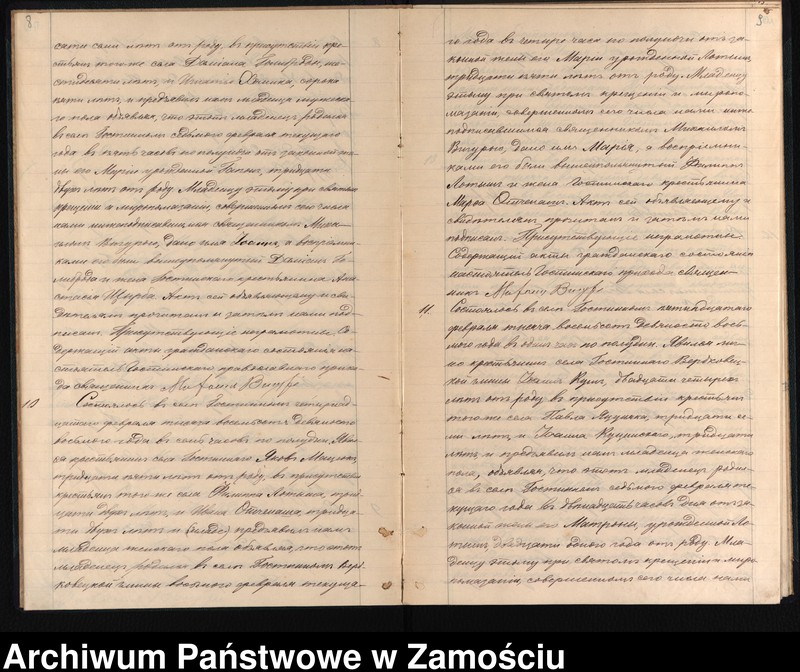 8
сяти семи лѣтъ отъ роду, въ присутствіи кре-
стьянъ того же села Даміана
стидесяти лѣтъ и Игнатія сорока
пяти лѣтъ, и предъявилъ намъ младенца мужска-
го пола объявляя, что этотъ младенецъ родился
въ селѣ Гостинномъ седьмого февраля текущаго
года въ пять часовъ по полудни отъ законной же-
ны его Маріи урожденной тридцати
двухъ лѣтъ отъ роду. Младенцу этому при святомъ
крещеніи и миропомазаніи, совершенномъ сего числа
нами нижеподписавшимся священникомъ Миха-
иломъ дано имя а воспріемни-
ками его были вышеупомянутый Даміанъ
и жена Гостинскаго крестьянина Ана-
стасія Актъ сей объявляющему и сви-
дѣтелямъ прочитанъ и затѣмъ нами под-
писанъ. Присутствующіе неграмотные. Со-
держащій акты гражданскаго состоянія на-
стоятель Гостинскаго православнаго прихо-
да священникъ
10
Состоялось въ селѣ Гостинномъ четырнад-
цатого февраля тысяча восемьсотъ девяносто
восьмого года въ семь часовъ по полудни. Яви-
лся крестьянинъ села Гостиннаго Яковъ
тридцати пяти лѣтъ отъ роду, въ присутствіи
крестьянъ того же села Филиппа Лотыша, трид-
цати двухъ лѣтъ и тридца-
ти двухъ лѣтъ и предъявилъ намъ
младенца женскаго пола объявляя, что этотъ
младенецъ родился въ селѣ Гостинномъ Верб-
ковицкой гмины восьмого февраля текуща-
9
го года въ четыре часа по полуночи отъ за-
конной жены его Маріи урожденной Лотышъ
тридцати пяти лѣтъ отъ роду. Младенцу
этому при святомъ крещеніи и миропо-
мазаніи, совершенномъ сего числа нами ниже
подписавшимся священникомъ Михаиломъ
дано имя Марія, а воспріемни-
ками его были вышеупомянутый Филиппъ
Лотышъ и жена Гостинскаго крестьянина
Марѳа Актъ сей объявляющему и
свидѣтелямъ прочитанъ и затѣмъ нами
подписанъ. Присутствующіе неграмотные.
Содержащій акты гражданскаго состоянія
настоятель Гостинскаго прихода священ-
никъ
11.
Состоялось въ селѣ Гостинномъ пятнадцатаго
февраля тысяча восемьсотъ девяносто вось-
мого года въ одинъ часъ по полудни. Явился лич-
но крестьянинъ села Гостиннаго Вербковиц-
кой гмины двадцати четырехъ
лѣтъ отъ роду въ присутствіи крестьянъ
того же села Павла тридцати се-
ми лѣтъ и тридцати
лѣтъ и предъявилъ намъ младенца женскаго
пола, объявляя, что этотъ младенецъ родил-
ся въ селѣ Гостинномъ седьмого февраля те-
кущаго года въ двѣнадцать часовъ дня отъ за-
конной жены его Матроны, урожденной Ло-
тышъ двадцати одного года отъ роду. Мла-
денцу этому при святомъ крещеніи и миро-
помазаніи, совершенномъ сего числа нами
Archiwum Państwowe w Zamościu